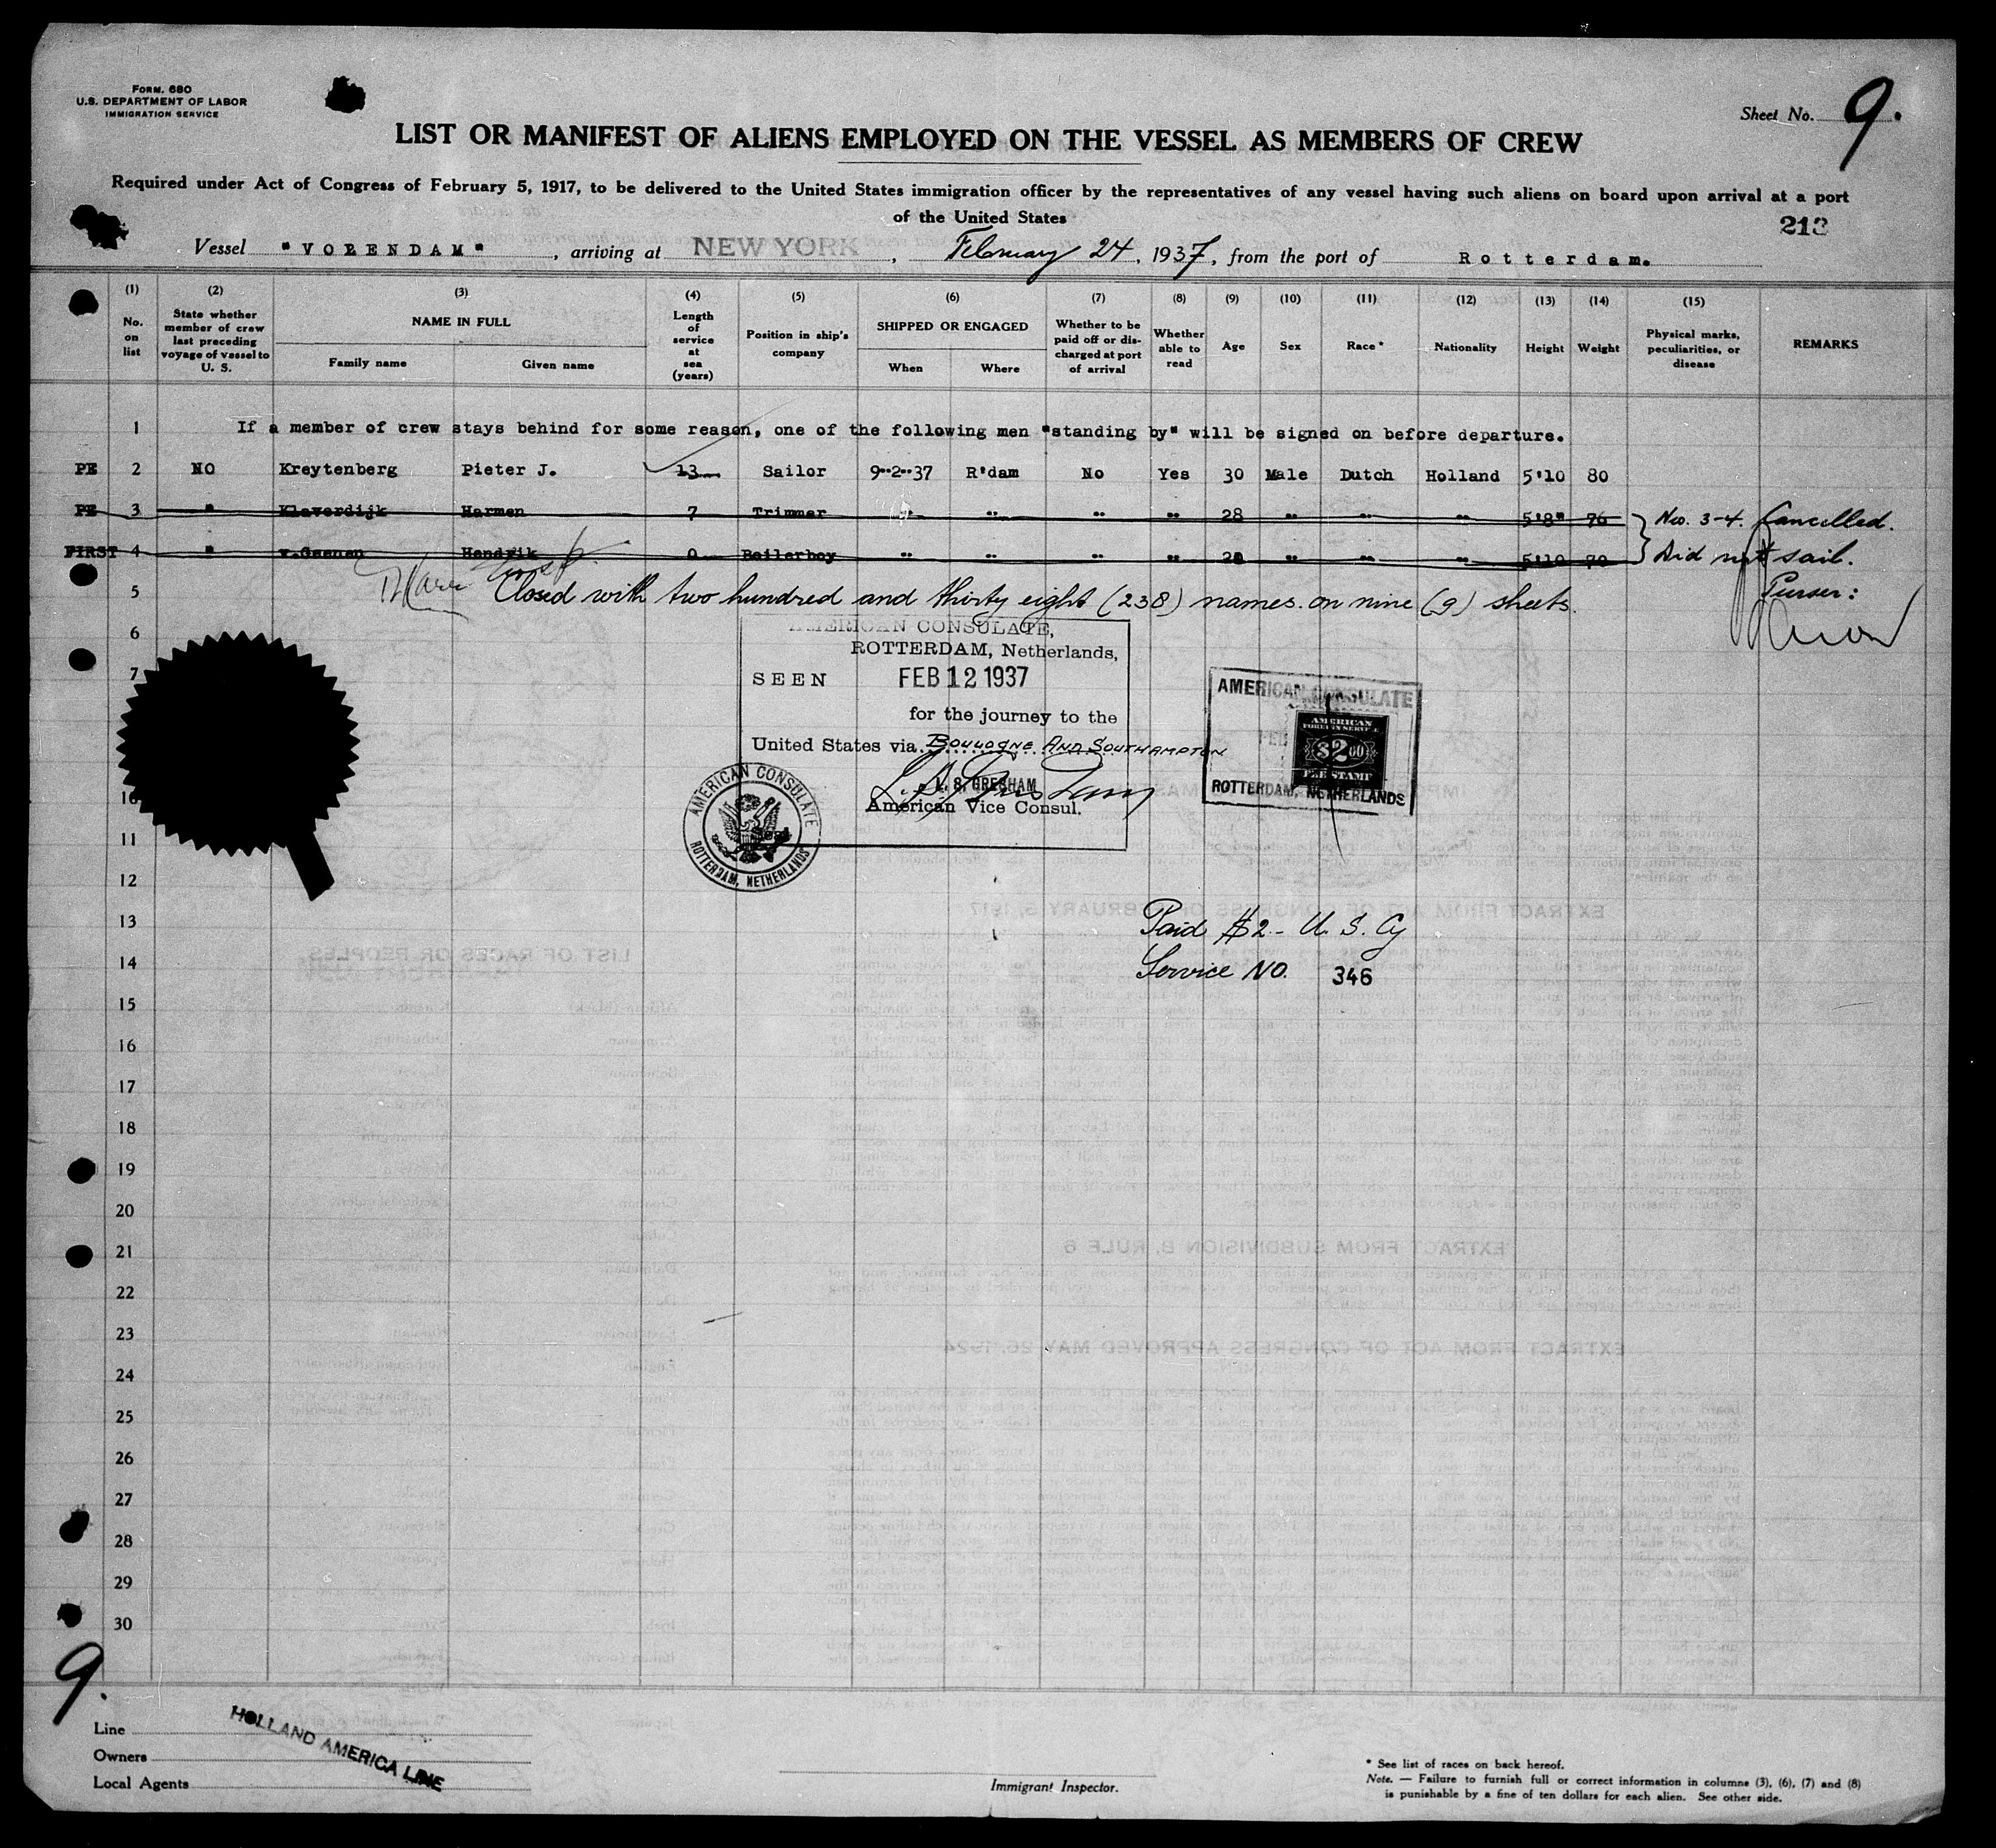 FORM. 680
U.S. DEPARTMENT OF LABOR
IMMIGRATION SERVICE
Sheet No. 9.
LIST OR MANIFEST OF ALIENS EMPLOYED ON THE VESSEL AS MEMBERS OF CREW
Required under Act of Congress of February 5, 1917, to be delivered to the United States immigration officer by the representatives of any vessel having such aliens on board upon arrival at a port
of the United States
213
Vessel "VOLENDAM", arriving at NEW YORK, February 24, 1937, from the port of Rotterdam.
(1) (2) (3) (4) (5) (6) (7) (8) (9) (10) (11) (12) (13) (14) (15)
No. on list
State whether member of crew last preceding voyage of vessel to U. S.
NAME IN FULL
Family name
Given name
Length of service at sea (years)
Position in ship's company
SHIPPED OR ENGAGED
When
Where
Whether to be paid off or discharged at port of arrival
Whether able to read
Age
Sex
Race*
Nationality
Height
Weight
Physical marks, peculiarities, or disease
REMARKS
1 If a member of crew stays behind for some reason, one of the following men "standing by" will be signed on before departure.
PE 2 NO Kreytenberg Pieter J. 13 Sailor 9-2-37 R'dam No Yes 30 Male Dutch Holland 5'10 80
PE 3 " Klaverdijk Harmen 7 Trimmer " " " " 28 " " " 5'8" 76 Nos. 3-4. Cancelled.
FIRST 4 " v.Geenen Hendrik 0 Boilerboy " " " " " " " 5'10 70 Did not sail.
5 Closed with two hundred and thirty eight (238) names on nine (9) sheets. Purser:
6
7
AMERICAN CONSULATE,
ROTTERDAM, Netherlands,
SEEN FEB 12 1937
for the journey to the
United States via BOULOGNE AND SOUTHAMPTON
L. S. GRESHAM
American Vice Consul.
AMERICAN CONSULATE
ROTTERDAM, NETHERLANDS
Seal
AMERICAN CONSULATE
FEB
AMERICAN
FOREIGN SERVICE
$2.00
FEE STAMP
ROTTERDAM, NETHERLANDS
10
11
12
13 Paid $2 - U. S. Cy
14 Service NO. 346
15
16
17
18
19
20
21
22
23
24
25
26
27
28
29
30
9.
Line
Owners
Local Agents
HOLLAND AMERICA LINE
Immigrant Inspector.
* See list of races on back hereof.
Note. — Failure to furnish full or correct information in columns (3), (6), (7) and (8)
is punishable by a fine of ten dollars for each alien. See other side.